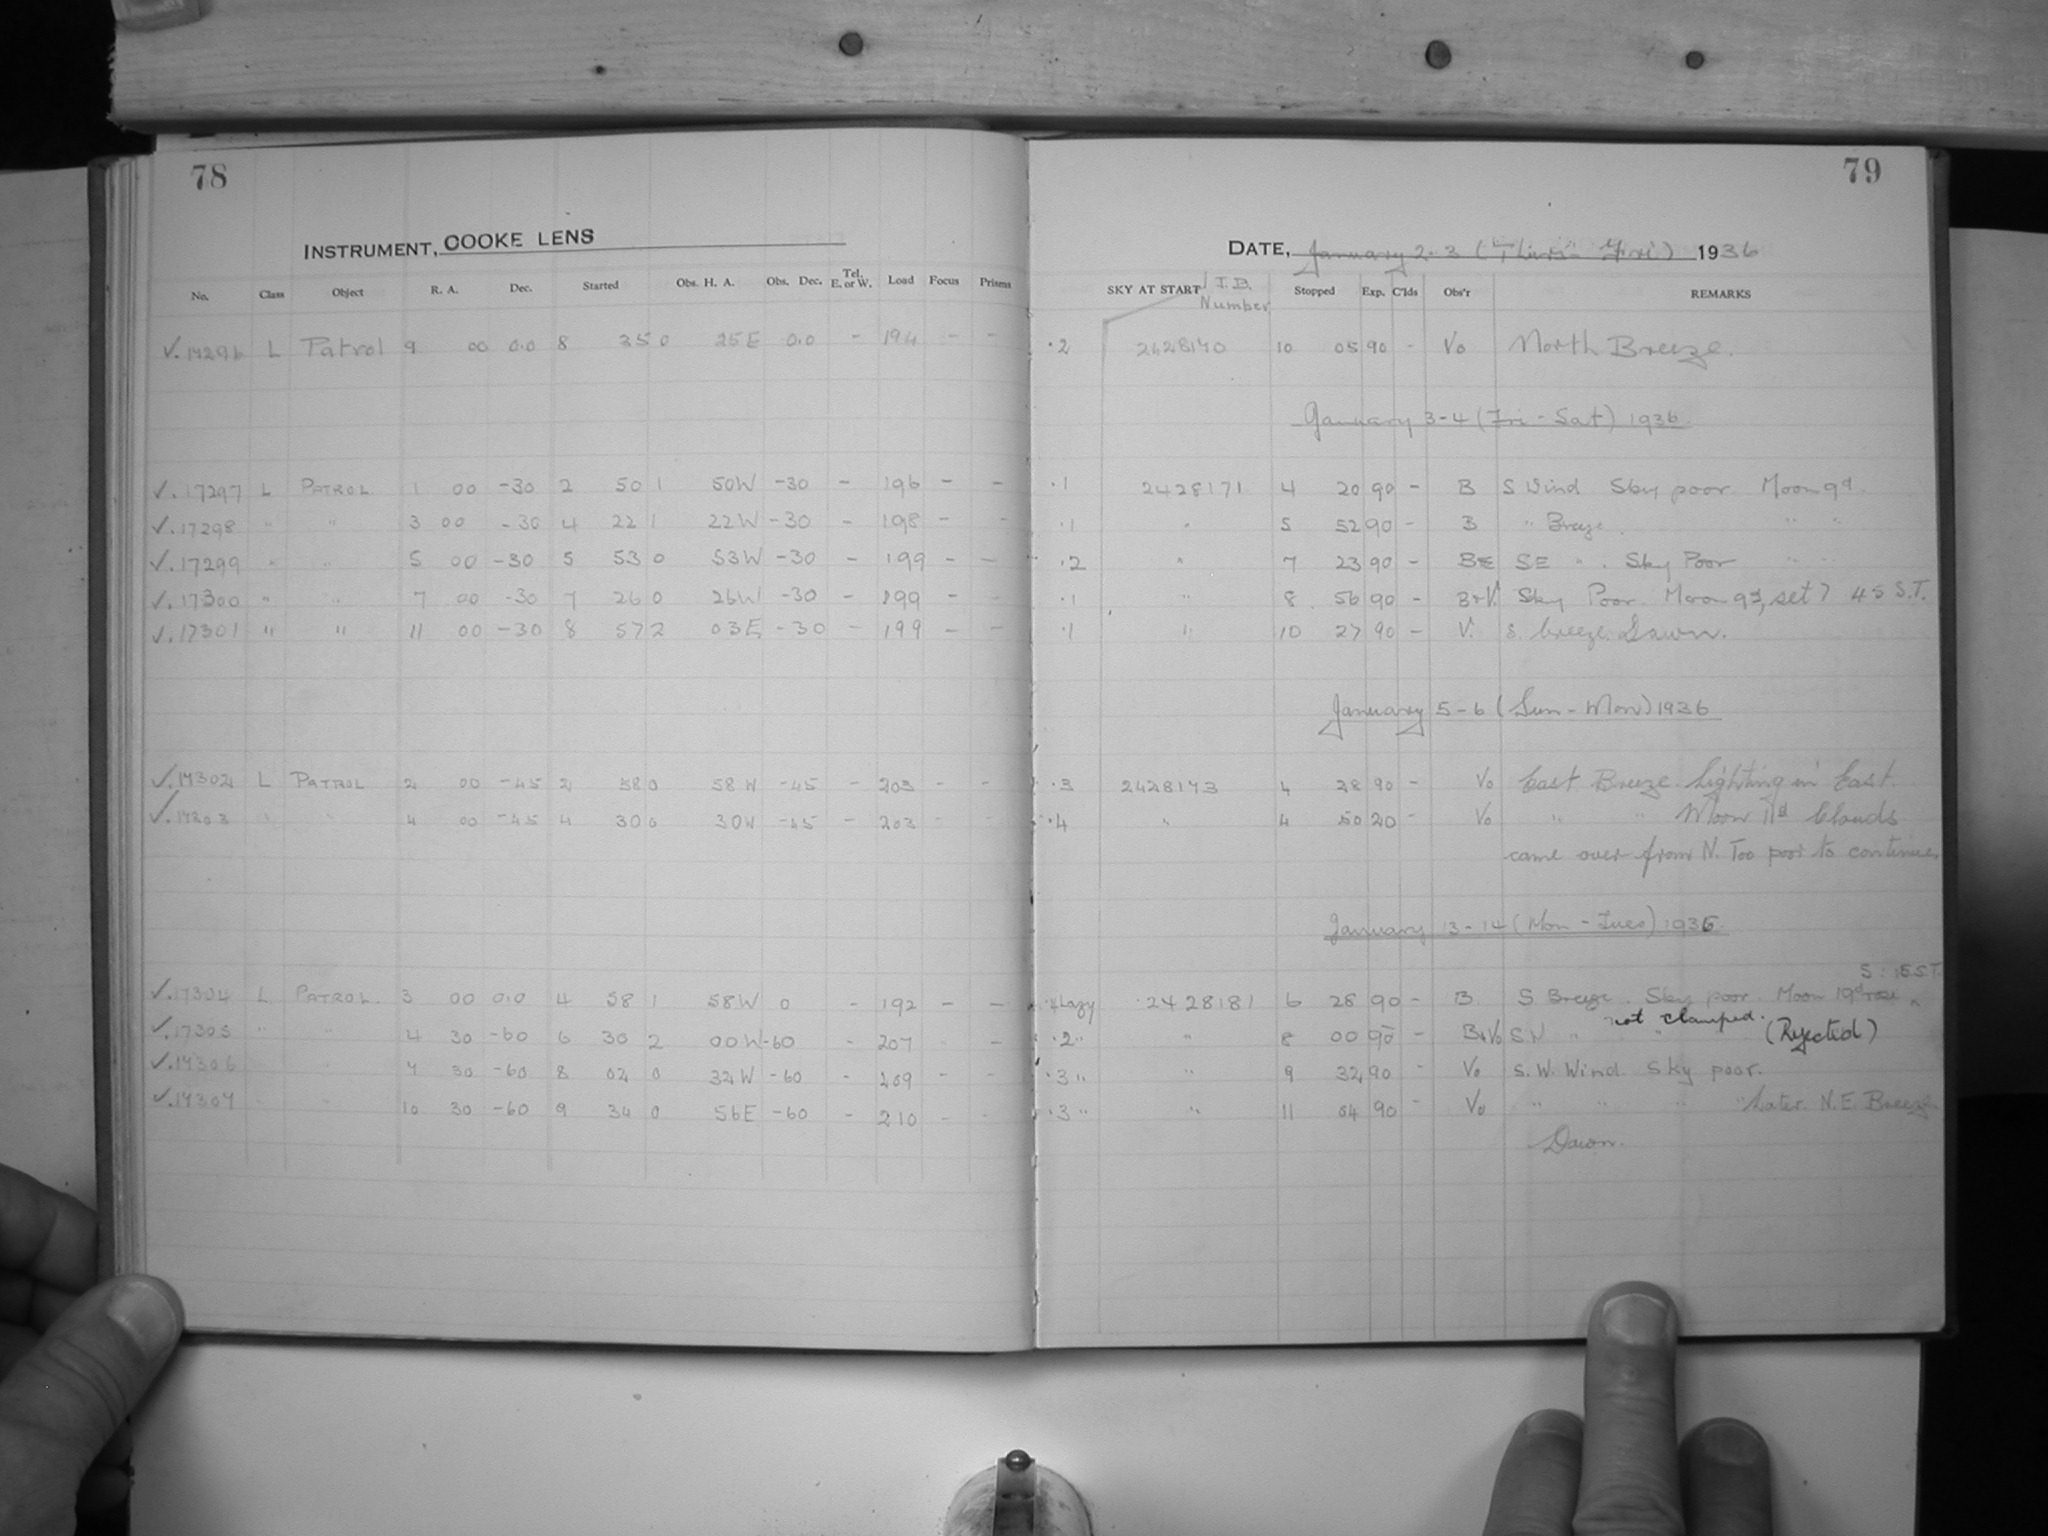 78
INSTRUMENT, COOKE LENS
No. Class Object R. A. Dec. Started Obs. H. A. Obs. Dec. Tel. E. or W. Load Focus Prisms
✓.17296 L Patrol 9 00 0.0 8 35 0 25E 0.0 - 194 - -
✓.17297 L PATROL 1 00 -30 2 50 1 50W -30 - 196 - -
✓.17298 " " 3 00 -30 4 22 1 22W -30 - 198 - -
✓.17299 " " 5 00 -30 5 53 0 53W -30 - 199 - -
✓.17300 " " 7 00 -30 7 26 0 26W -30 - 199 - -
✓.17301 " " 11 00 -30 8 57 2 03E -30 - 199 - -
✓.17302 L PATROL 2 00 -45 2 58 0 58W -45 - 203 - -
✓.17303 " " 4 00 -45 4 30 0 30W -45 - 203 - -
✓.17304 L PATROL. 3 00 0.0 4 58 1 58W 0 - 192 - -
✓.17305 " " 4 30 -60 6 30 2 00W -60 - 207 - -
✓.17306 " 7 30 -60 8 02 0 32W -60 - 209 - -
✓.17307 " " 10 30 -60 9 34 0 56E -60 - 210 - -
79
DATE, January 2-3 (Thurs - Fri) 1936
SKY AT START J.D. Number Stopped Exp. C'lds Obs'r REMARKS
.2 2428170 10 05 90 - Vo North Breeze.
January 3-4 (Fri - Sat) 1936.
.1 2428171 4 20 90 - B S Wind Sky poor Moon 9d.
.1 " 5 52 90 - B " Breeze. " "
.2 " 7 23 90 - BE SE " . Sky Poor "
.1 " 8 56 90 - B+V. Sky Poor. Moon 9d, set 7 45 S.T.
.1 " 10 27 90 - V. S. breeze. Dawn.
January 5-6 (Sun - Mon) 1936
.3 2428173 4 28 90 - Vo East Breeze. Lighting in East.
.4 " 4 50 20 - Vo " " Moon 11d Clouds
came over from N. Too poor to continue.
January 13-14 (Mon - Tues) 1936
5:15 S.T.
.4 Lazy 2428181 6 28 90 - B. S Breeze. Sky poor. Moon 19d rose
not clamped.
.2 " " 8 00 90 - B+Vo SW " " (Rejected)
.3 " " 9 32 90 - Vo S.W. Wind. Sky poor.
.3 " " 11 04 90 - Vo " " " " Later N.E. Breeze.
Dawn.